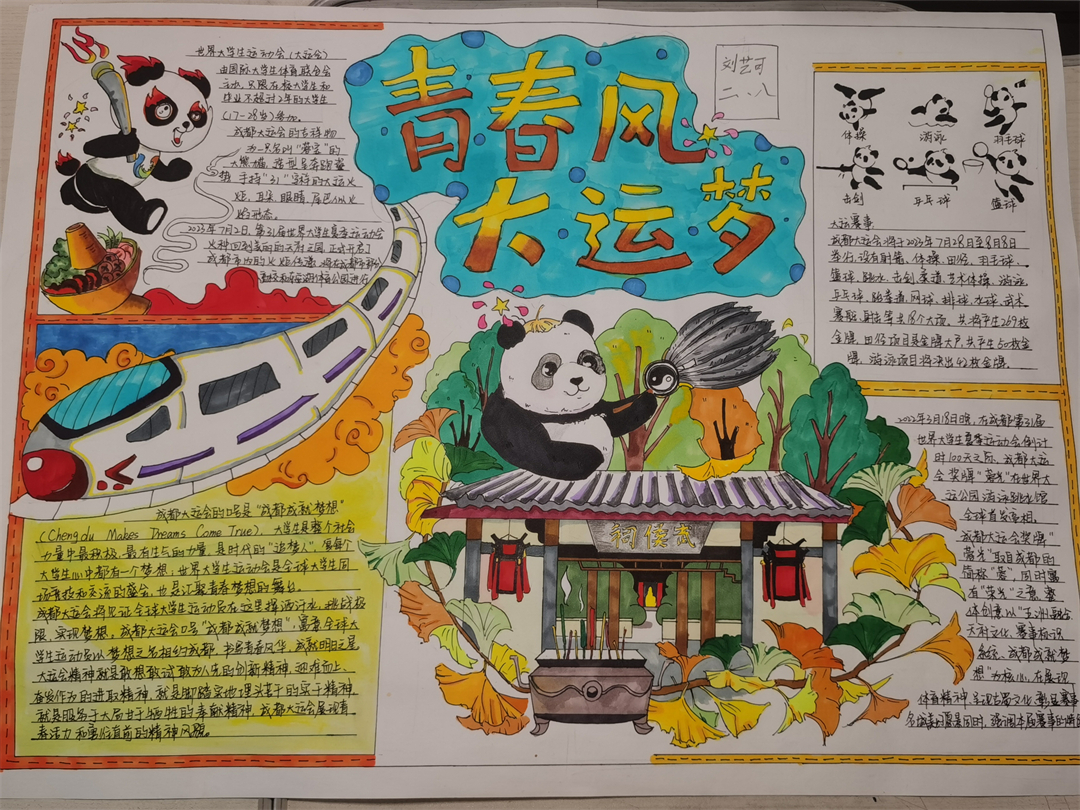 青春风
大运梦
刘艺可
二、八
世界大学生运动会(大运会)
由国际大学生体育联合会
主办，只限在校大学生和
毕业不超过2年的大学生
(17-28岁)参加。
成都大运会的吉祥物
为一只名叫"蓉宝"的
大熊猫，造型呈奔跑姿
手持"31"字样的大运火
炬，耳朵、眼睛、尾巴似火
焰形态。
2023年7月2日，第31届世界大学生夏季运动会
成都大运会的口号是"成都成就梦想"
(Chengdu Makes Dreams Come True)，大学生是整个社会
力量中最积极、最有生气的力量，是时代的"追梦人"，假每个
大学生心中都有一个梦想，世界大学生运动会是全球大学生同
场竞技和交流的盛会，也是汇聚青春梦想的舞台。
成都大运会将见证全球大学生运动员在这里挥洒汗水，挑战极
限、实现梦想。成都大运会口号"成都成就梦想"，寓意全球大
学生运动员以梦想之名相约成都，书写青春风华，成就明日之星
大运会精神就是敢想敢试敢为人先的创新精神，迎难而上、
奋发作为的进取精神，就是脚踏实地埋头苦干的实干精神
就是服务于大局甘于牺牲的奉献精神，成都大运会展现青
春活力和勇往直前的精神风貌。
武侯祠
体操
游泳
羽毛球
击剑
乒乓球
篮球
大运赛事:
成都大运会将于2023年7月28日至8月8日
举行，设有射箭、体操、田径、羽毛球、
篮球、跳水、击剑、柔道、艺术体操、游泳
乒乓球、跆拳道、网球、排球、水球、武术
赛艇、射击等共18个大项，共将产生269枚
金牌，田径项目是金牌大户，共产生50枚金
牌，游泳项目将决出42枚金牌。
世界大学生夏季运动会倒计
时100天之际，成都大运
会奖牌"蓉光"在世界大
运公园游泳跳水馆
全球首发亮相。
成都大运会奖牌"
蓉光"取自成都的
简称"蓉"，同时兼
有"荣光"之意，整
体创意以"五洲融合
天府文化、赛事标识
系统、成都成就梦
想"为核心，在展现